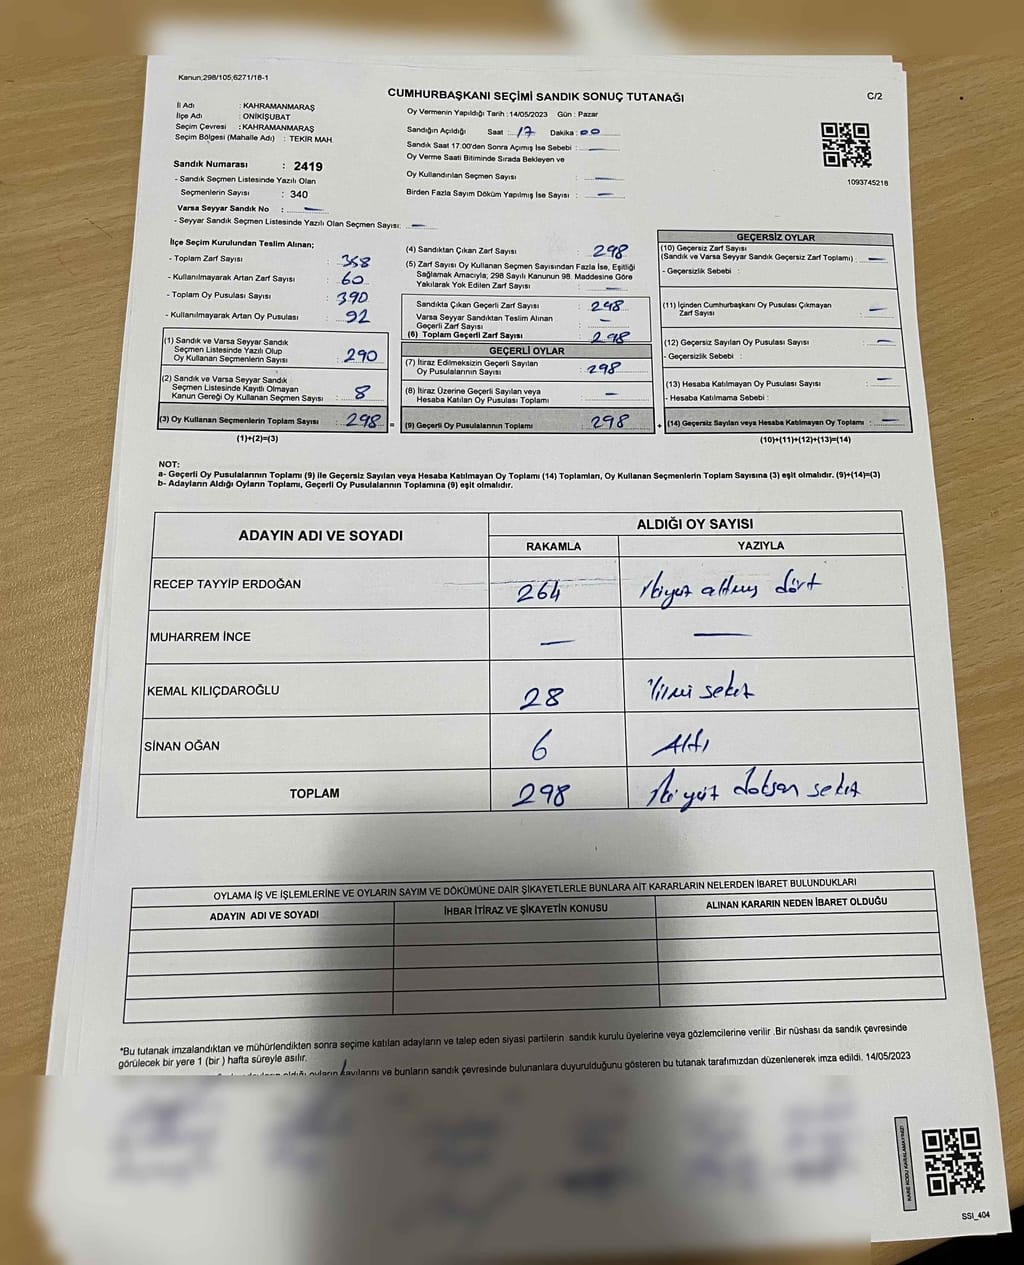 Kanun,298/105,6271/18-1
CUMHURBAŞKANI SEÇİMİ SANDIK SONUÇ TUTANAĞI
C/2
İl Adı : KAHRAMANMARAŞ
İlçe Adı : ONİKİŞUBAT
Seçim Çevresi : KAHRAMANMARAŞ
Seçim Bölgesi (Mahalle Adı) : TEKİR MAH.
Sandık Numarası : 2419
- Sandık Seçmen Listesinde Yazılı Olan
Seçmenlerin Sayısı : 340
Varsa Seyyar Sandık No : —
- Seyyar Sandık Seçmen Listesinde Yazılı Olan Seçmen Sayısı: —
Oy Vermenin Yapıldığı Tarih : 14/05/2023 Gün : Pazar
Sandığın Açıldığı Saat : 17 Dakika : 00
Sandık Saat 17:00'den Sonra Açımış İse Sebebi : —
Oy Verme Saati Bitiminde Sırada Bekleyen ve
Oy Kullandırılan Seçmen Sayısı : —
Birden Fazla Sayım Döküm Yapılmış İse Sayısı : —
1093745218
İlçe Seçim Kurulundan Teslim Alınan;
- Toplam Zarf Sayısı : 358
- Kullanılmayarak Artan Zarf Sayısı : 60
- Toplam Oy Pusulası Sayısı : 390
- Kullanılmayarak Artan Oy Pusulası : 92
(1) Sandık ve Varsa Seyyar Sandık
Seçmen Listesinde Yazılı Olup
Oy Kullanan Seçmenlerin Sayısı : 290
(2) Sandık ve Varsa Seyyar Sandık
Seçmen Listesinde Kayıtlı Olmayan
Kanun Gereği Oy Kullanan Seçmen Sayısı : 8
(3) Oy Kullanan Seçmenlerin Toplam Sayısı : 298
(1)+(2)=(3)
(4) Sandıktan Çıkan Zarf Sayısı : 298
(5) Zarf Sayısı Oy Kullanan Seçmen Sayısından Fazla İse, Eşitliği
Sağlamak Amacıyla; 298 Sayılı Kanunun 98. Maddesine Göre
Yakılarak Yok Edilen Zarf Sayısı : —
Sandıkta Çıkan Geçerli Zarf Sayısı : 298
Varsa Seyyar Sandıktan Teslim Alınan
Geçerli Zarf Sayısı : —
(6) Toplam Geçerli Zarf Sayısı : 298
GEÇERLİ OYLAR
(7) İtiraz Edilmeksizin Geçerli Sayılan
Oy Pusulalarının Sayısı : 298
(8) İtiraz Üzerine Geçerli Sayılan veya
Hesaba Katılan Oy Pusulası Toplamı : —
= (9) Geçerli Oy Pusulalarının Toplamı : 298
GEÇERSİZ OYLAR
(10) Geçersiz Zarf Sayısı
(Sandık ve Varsa Seyyar Sandık Geçersiz Zarf Toplamı) : —
- Geçersizlik Sebebi :
(11) İçinden Cumhurbaşkanı Oy Pusulası Çıkmayan
Zarf Sayısı : —
(12) Geçersiz Sayılan Oy Pusulası Sayısı : —
- Geçersizlik Sebebi :
(13) Hesaba Katılmayan Oy Pusulası Sayısı : —
- Hesaba Katılmama Sebebi :
+ (14) Geçersiz Sayılan veya Hesaba Katılmayan Oy Toplamı : —
(10)+(11)+(12)+(13)=(14)
NOT:
a- Geçerli Oy Pusulalarının Toplamı (9) ile Geçersiz Sayılan veya Hesaba Katılmayan Oy Toplamı (14) Toplamları, Oy Kullanan Seçmenlerin Toplam Sayısına (3) eşit olmalıdır. (9)+(14)=(3)
b- Adayların Aldığı Oyların Toplamı, Geçerli Oy Pusulalarının Toplamına (9) eşit olmalıdır.
ADAYIN ADI VE SOYADI
ALDIĞI OY SAYISI
RAKAMLA YAZIYLA
RECEP TAYYİP ERDOĞAN 264 ikiyüz altmış dört
MUHARREM İNCE — —
KEMAL KILIÇDAROĞLU 28 Yirmi sekiz
SİNAN OĞAN 6 Altı
TOPLAM 298 iki yüz doksan sekiz
OYLAMA İŞ VE İŞLEMLERİNE VE OYLARIN SAYIM VE DÖKÜMÜNE DAİR ŞİKAYETLERLE BUNLARA AİT KARARLARIN NELERDEN İBARET BULUNDUKLARI
ADAYIN ADI VE SOYADI İHBAR İTİRAZ VE ŞİKAYETİN KONUSU ALINAN KARARIN NEDEN İBARET OLDUĞU
*Bu tutanak imzalandıktan ve mühürlendikten sonra seçime katılan adayların ve talep eden siyasi partilerin sandık kurulu üyelerine veya gözlemcilerine verilir .Bir nüshası da sandık çevresinde
görülecek bir yere 1 (bir ) hafta süreyle asılır.
aldığı oyların sayılarını ve bunların sandık çevresinde bulunanlara duyurulduğunu gösteren bu tutanak tarafımızdan düzenlenerek imza edildi. 14/05/2023
KARE KODU KARALAMAYINIZ!
SSI_404